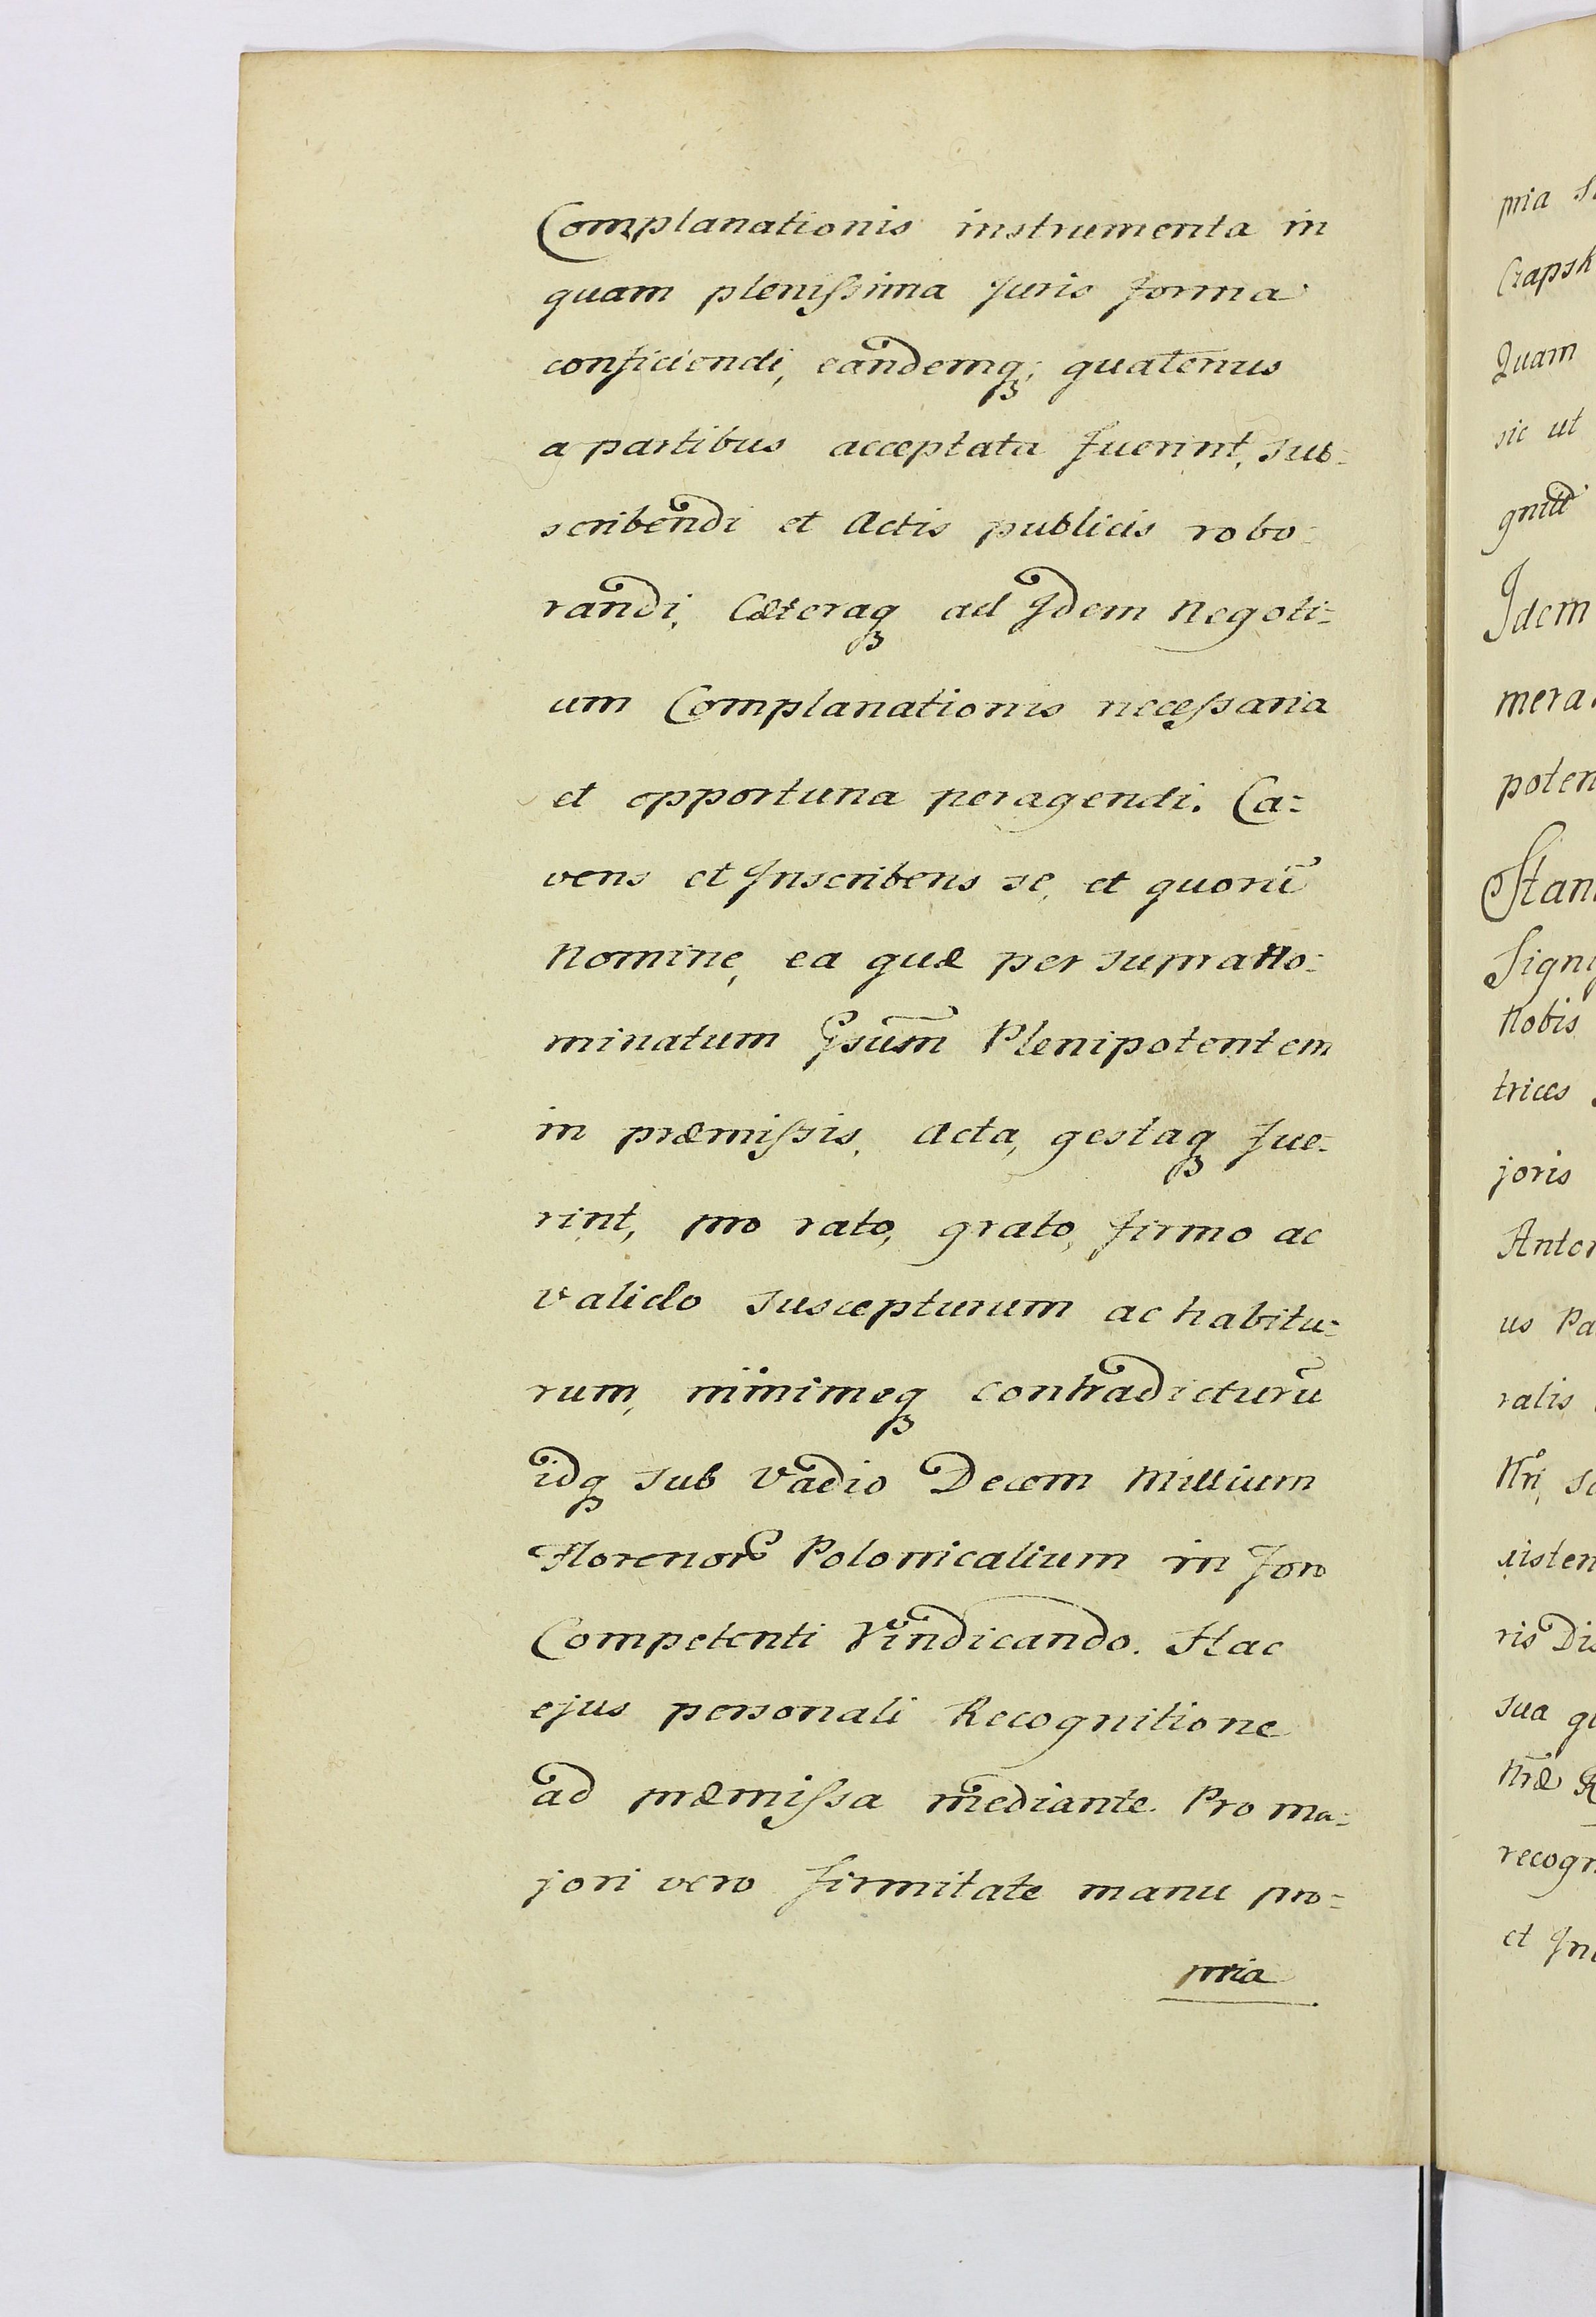 Complanationis instrumenta in
quam plenissima Juris forma
conficiendi, eandemq; quatenus
a partibus acceptata fuerint, sub=
scribendi et Actis publicis robo=
randi, Cæteraq ad Idem Negoti=
um Complanationis necessaria
et opportuna peragendi. Ca=
vens et Inscribens se, et quorū
Nomine, ea quæ per supra No=
minatum Plenipotentem
in præmissis, Acta, gestaq fue=
rint, pro rato, grato, firmo ac
valido suscepturum ac habitu=
rum, minimeq contradicturū
idq sub Vadio Decem Millium
Florenor Polonicalium in foro
Competenti Vindicando. Hac
ejus personali Recognitione
ad præmissa mediante. Pro ma=
jori vero firmitate manu pro=
pria
pria
Czapsk
Quam
sic ut
gnitt
Idem
mera
poten
Stan
Sign
Nobis
trices
joris
Anton
us Pa
ralis
Nri, S
sisten
ris Di
sua q
Nræ R
recogn
et In